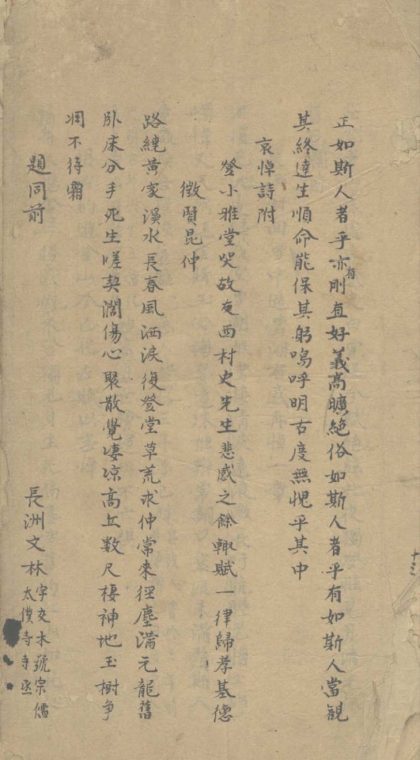 正如斯人者乎亦有剛直好義高曠絕俗如斯人者乎有如斯人當觀
其終達生順命能保其躬嗚呼明古度無愧乎其中
哀悼詩附
登小雅堂哭故友西村史先生悲感之餘輒賦一律歸孝基德
徵賢昆仲
路繞黃家溪水長春風洒淚復登堂草荒求仲常來徑塵滿元龍舊
臥床分手死生嗟契闊傷心聚散覺凄涼高丘数尺棲神地玉樹爭
凋不待霜
題同前
長洲文林字交木號宗儒
太僕寺寺丞